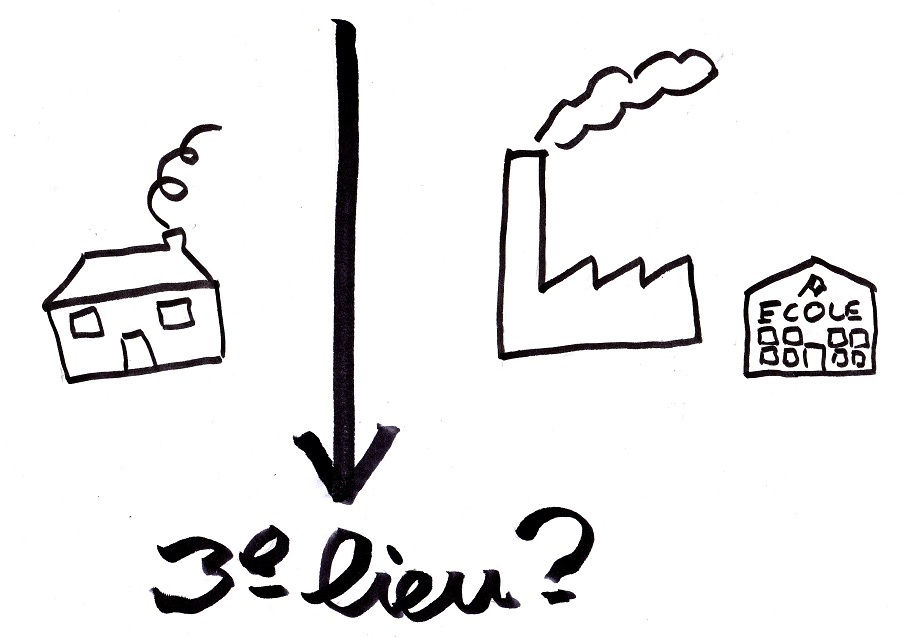 ECOLE
3e lieu?